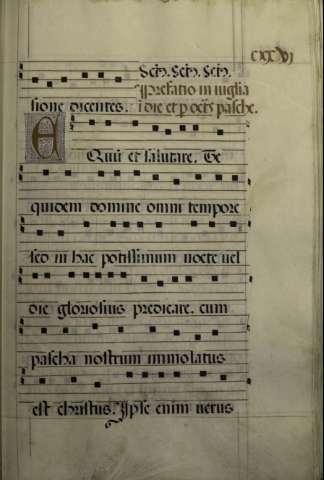 cxxvi
Sctus. Sctus. Sctus.
Prefatio in uigilia
sione dicentes. i die et p octas pasche.
Equum et salutare. Te
quidem domine omni tempore
sed in hac potissimum nocte uel
die gloriosius predicare. cum
pascha nostrum immolatus
est christus. Ipse enim uerus